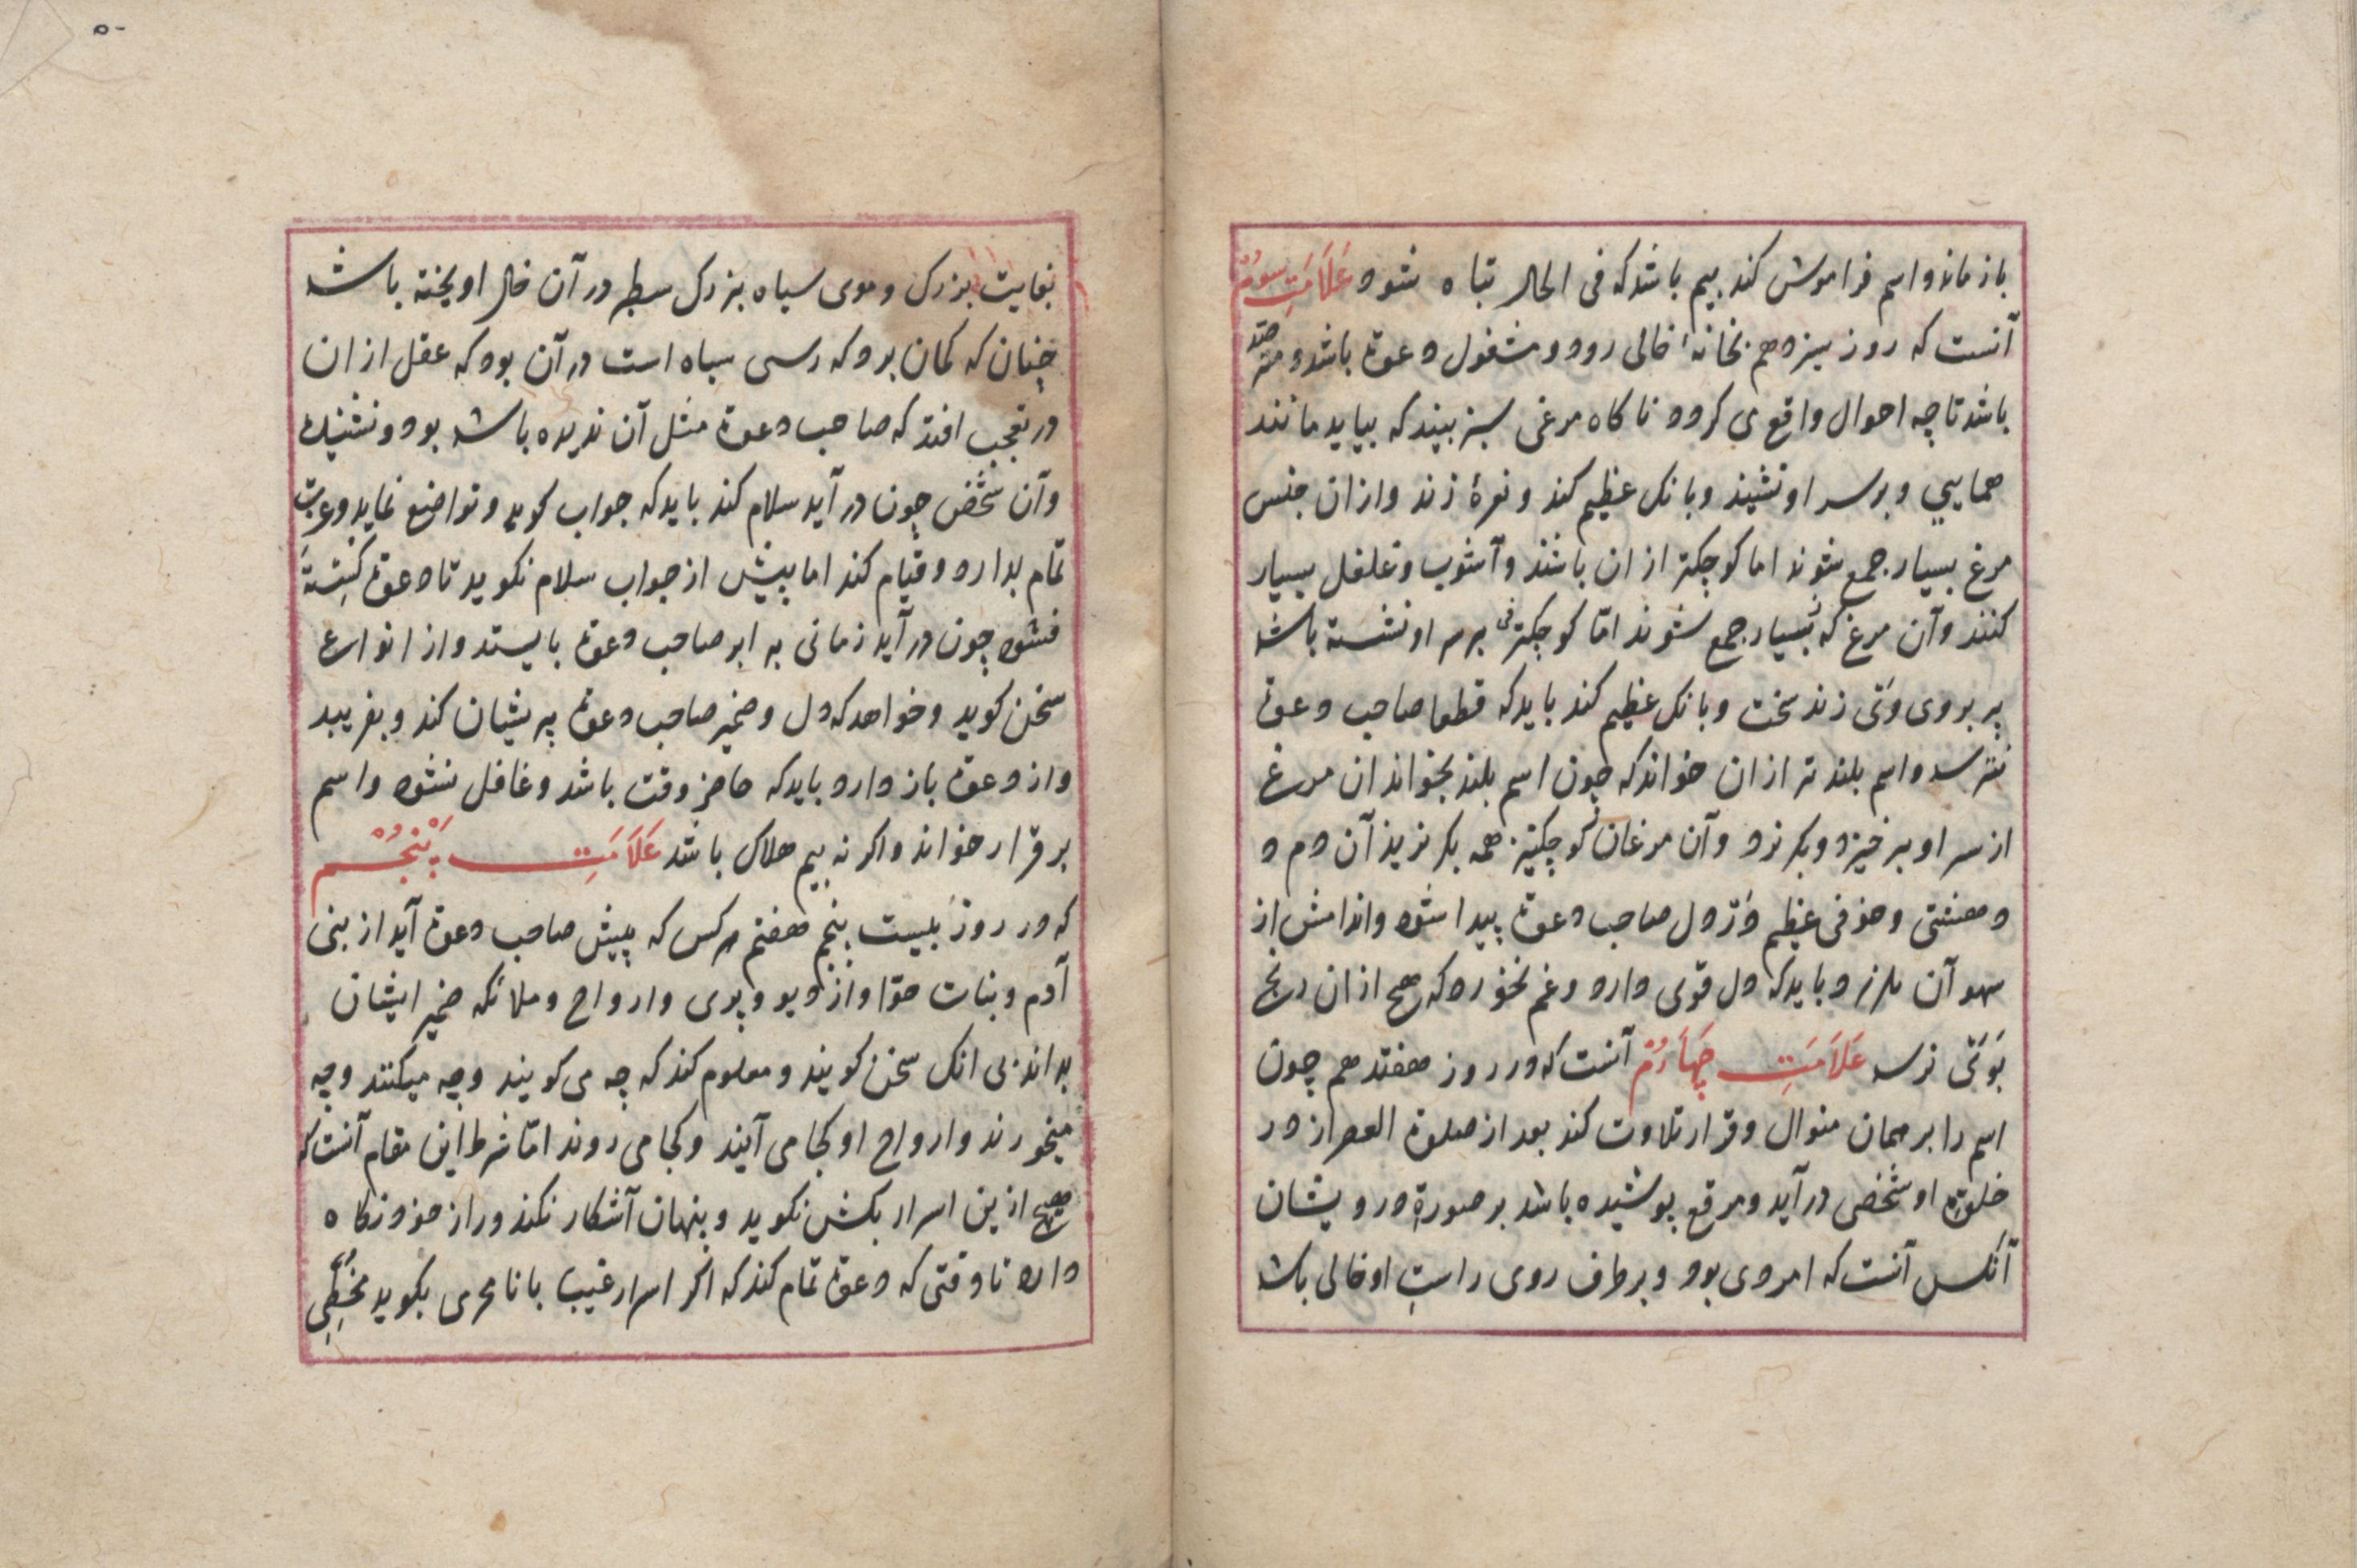 باز ماند و اسم فراموش کند بیم باشد که فی الحال تباه شود عَلَامَتِ سوم
آنست که روز سیزدهم بخانهٔ خالی رود و مشغول دعوة باشد و مترصد
باشد تا چه احوال واقع می کردد ناکاه مرغی سبز بیند که بیاید مانند
همایی و بر سر او نشیند و بانک عظیم کند و نعرهٔ زند و از ان جنس
مرغ بسیار جمع شوند اما کوچکتر از ان باشند و آشوب و غلغل بسیار
کنند و آن مرغ که بسیار جمع شوند امّا کوچکتر بر سر او نشسته باشد
پر بروی وی زند سخت و بانک عظیم کند باید که قطعا صاحب دعوة
نترسد و اسم بلندتر از ان خواند که چون اسم بلند بخواند ان مرغ
از سر او بر خیزد و بکریزد و آن مرغان کوچکتر همه بکریزند آن دم د
دهشتی و خوفی عظیم در دل صاحب دعوة پیدا شود و اندامش از
سهو آن بلرزد باید که دل قوی دارد و غم نخورد که هیچ از ان رنج
بوی نرسد عَلَامَتِ چَهَارُمْ آنست که در روز هفتدهم چون
اسم را بر همان منوال و قرار تلاوت کند بعد از صلوة العصر از در
خلوة او شخصی در آید و مرقع پوشیده باشد بر صورة درویشان
آنکس آنست که امردی بود و بر طرف روی راستِ او خالی باشد
۵۰
بغایت بزرک و موی سیاه بزرک سطبر در آن خال اویخته باشد
چنان که کمان برد که رسی سیاه است در آن بود که عقل از ان
در تعجب افتد که صاحب دعوة مثل آن ندیده باشد بود و نشنیده
و آن شخص چون در آید سلام کند باید که جواب کوید و تواضع نماید و عزت
تمام بدارد و قیام کند اما پیش از جواب سلام نکوید تا دعوة کشته
نشود چون در آید زمانی برابر صاحب دعوة بایستد و از انواع
سخن کوید و خواهد که دل و ضمیر صاحب دعوة پریشان کند و بفریبد
و از دعوة باز دارد باید که حاضر وقت باشد و غافل نشود و اسم
بر قرار خواند و اکر نه بیم هلاک باشد عَلَامَتِ پَنْجُمْ
که در روز بیست پنجم هفتم هر کس که پیش صاحب دعوة آید از بنی
آدم و بنات حوّا و از دیو و پری و ارواح و ملائکه ضمیر ایشان
بداند بی انک سخن کویند و معلوم کند که چه می کویند و چه میکنند و چه
میخورند و ارواح او کجا می آیند و کجا می روند امّا شرط این مقام آنست که
هیچ ازین اسرار بکس نکوید و پنهان آشکار نکند و راز خود نکاه
دارد تا وقتی که دعوة تمام کند که اکر اسرار غیب با نامحرمی بکوید